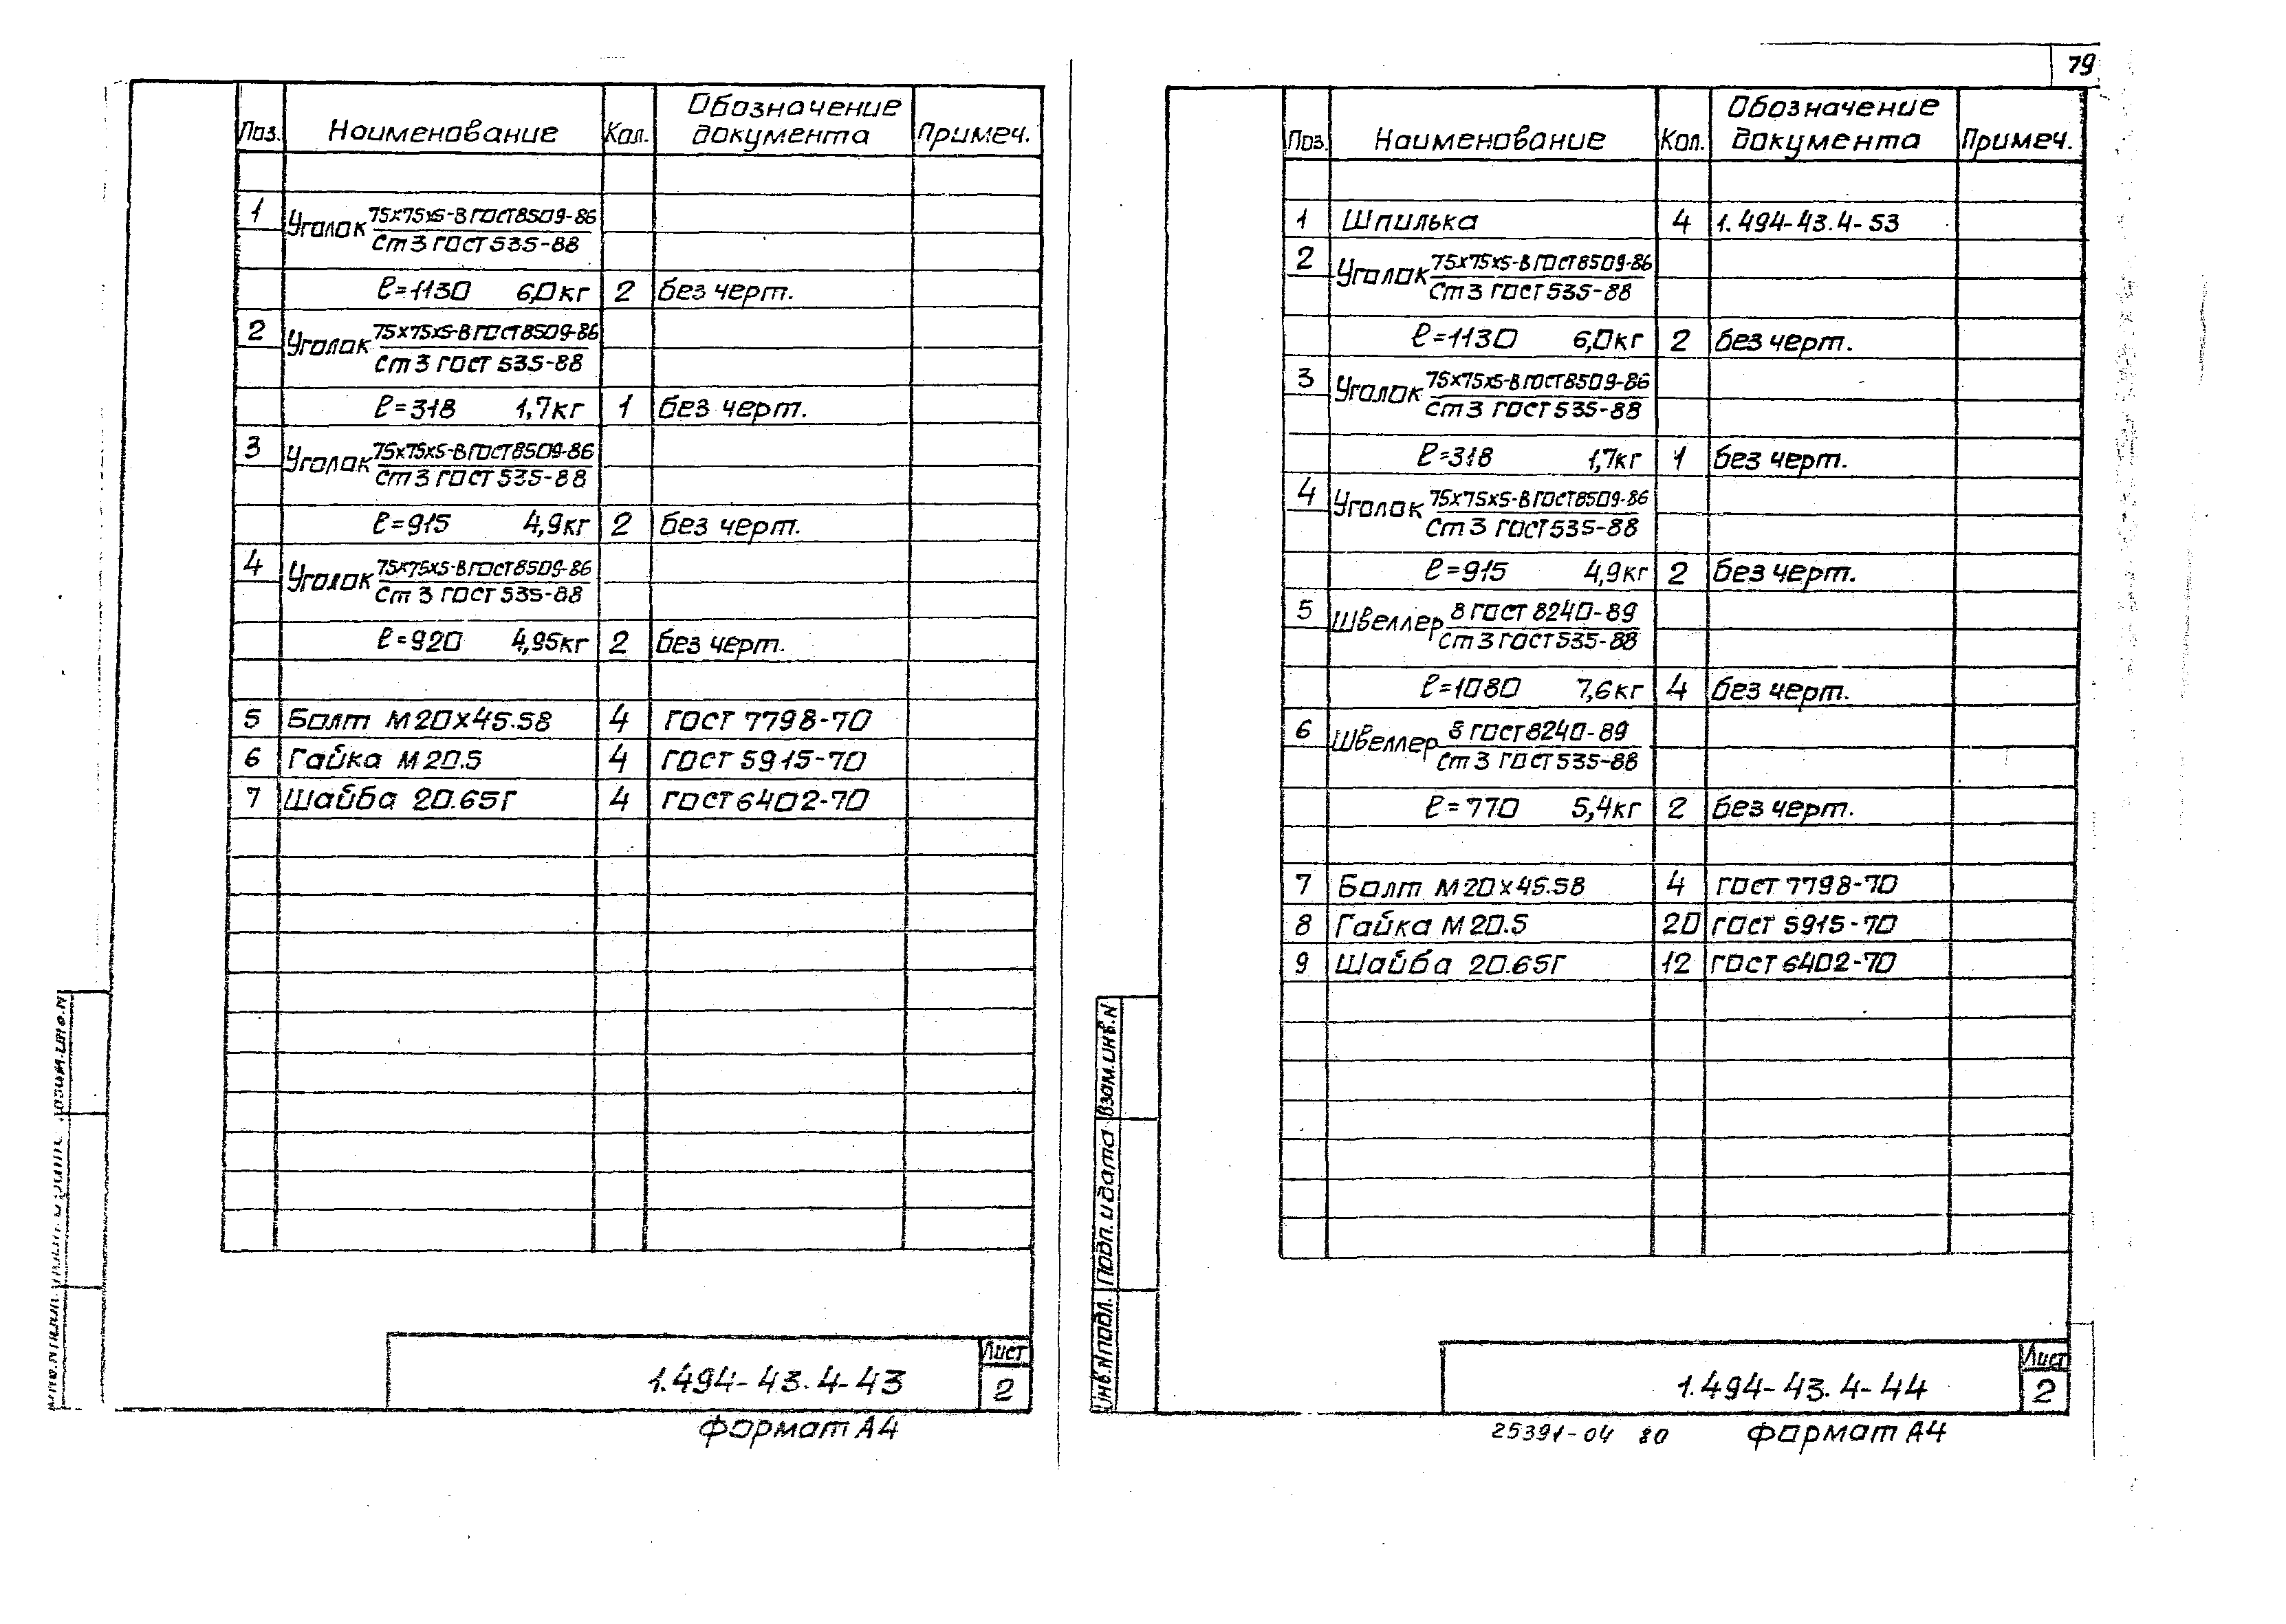 Поз. Наименование Кол. Обозначение документа Примеч.
1 Уголок 75х75х5-В ГОСТ 8509-86
Ст 3 ГОСТ 535-88
ℓ=1130 6,0кг 2 без черт.
2 Уголок 75х75х5-В ГОСТ 8509-86
Ст 3 ГОСТ 535-88
ℓ=318 1,7кг 1 без черт.
3 Уголок 75х75х5-В ГОСТ 8509-86
Ст 3 ГОСТ 535-88
ℓ=915 4,9кг 2 без черт.
4 Уголок 75х75х5-В ГОСТ 8509-86
Ст 3 ГОСТ 535-88
ℓ=920 4,95кг 2 без черт.
5 Болт М20х45.58 4 ГОСТ 7798-70
6 Гайка М20.5 4 ГОСТ 5915-70
7 Шайба 20.65Г 4 ГОСТ 6402-70
1.494-43.4-43
Лист
2
Формат А4
79
Поз. Наименование Кол. Обозначение документа Примеч.
1 Шпилька 4 1.494-43.4-53
2 Уголок 75х75х5-В ГОСТ 8509-86
Ст 3 ГОСТ 535-88
ℓ=1130 6,0кг 2 без черт.
3 Уголок 75х75х5-В ГОСТ 8509-86
Ст 3 ГОСТ 535-88
ℓ=318 1,7кг 1 без черт.
4 Уголок 75х75х5-В ГОСТ 8509-86
Ст 3 ГОСТ 535-88
ℓ=915 4,9кг 2 без черт.
5 Швеллер 8 ГОСТ 8240-89
Ст 3 ГОСТ 535-88
ℓ=1080 7,6кг 4 без черт.
6 Швеллер 8 ГОСТ 8240-89
Ст 3 ГОСТ 535-88
ℓ=770 5,4кг 2 без черт.
7 Болт М20х45.58 4 ГОСТ 7798-70
8 Гайка М20.5 20 ГОСТ 5915-70
9 Шайба 20.65Г 12 ГОСТ 6402-70
Инв.N подл. Подп. и дата Взам.инв.N
1.494-43.4-44
Лист
2
25391-04 80 Формат А4